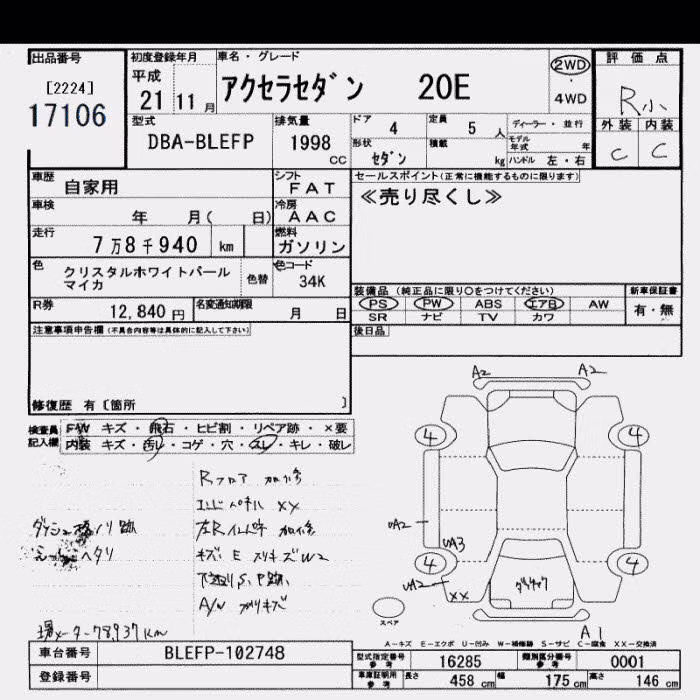 出品番号
[2224]
17106
初度登録年月
平成
21年 11月
車名・グレード
アクセラセダン 20E
2WD
・
4WD
評価点
R小
外装 内装
C C
型式
DBA-BLEFP
排気量
1998
CC
ドア
4
定員
5 人
ディーラー・並行
モデル年式 年
形状
セダン
積載
kg
ハンドル 左・右
車歴
自家用
シフト
FAT
車検
年 月( 日)
冷房
AAC
走行
7万8千940 km
燃料
ガソリン
色
クリスタルホワイトパール
マイカ
色替
色コード
34K
R券
12,840 円
名変通知期限
月 日
セールスポイント(正常に機能するものに限ります)
≪売り尽くし≫
装備品 (純正品に限り○をつけてください)
PS PW ABS エアB AW
SR ナビ TV カワ
新車保証書
有・無
後日品
注意事項申告欄(不具合内容等は具体的に記入して下さい)
修復歴 有〔箇所 〕
検査員
記入欄
F/W キズ・飛石・ヒビ割・リペア跡・×要
内装 キズ・汚レ・コゲ・穴・スレ・キレ・破レ
Rフロア 加修
エンドパネル XX
ダッシュ ノリ跡
左Rインナー 加修
ヘタリ
キズ、E スリキズ W2
下廻り S、P跡、
A/W ガリキズ
メーター 78937km
A2 A2
4 4
UA2
UA3
4 4
UA2
XX
スペア
A1
A-キズ E-エクボ U-凹み W-補修跡 S-サビ C-腐食 XX-交換済
車台番号
BLEFP-102748
登録番号
型式指定番号
参考
16285
類別区分番号
参考
0001
車庫証明用
参考
長さ 458 cm 幅 175 cm 高さ 146 cm